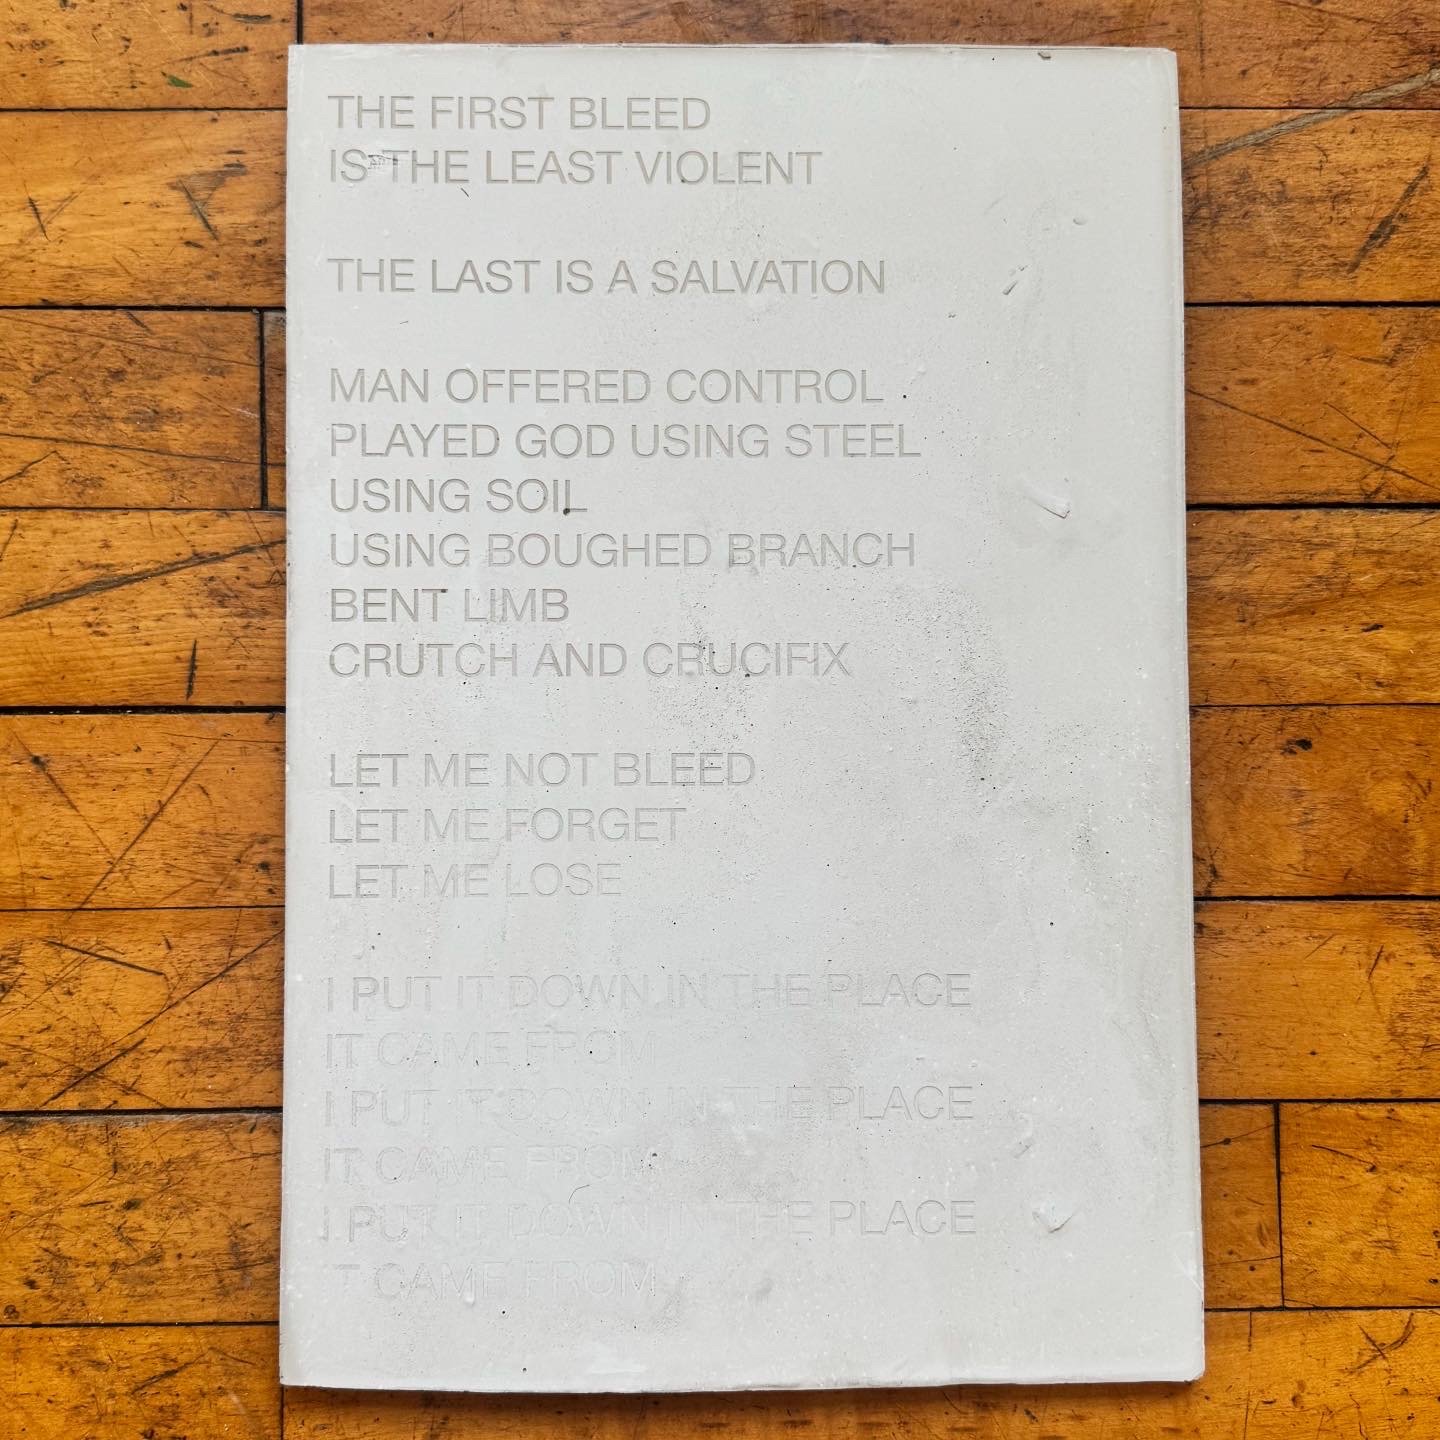 THE FIRST BLEED
IS THE LEAST VIOLENT
THE LAST IS A SALVATION
MAN OFFERED CONTROL
PLAYED GOD USING STEEL
USING SOIL
USING BOUGHED BRANCH
BENT LIMB
CRUTCH AND CRUCIFIX
LET ME NOT BLEED
LET ME FORGET
LET ME LOSE
I PUT IT DOWN IN THE PLACE
IT CAME FROM
I PUT IT DOWN IN THE PLACE
IT CAME FROM
I PUT IT DOWN IN THE PLACE
IT CAME FROM